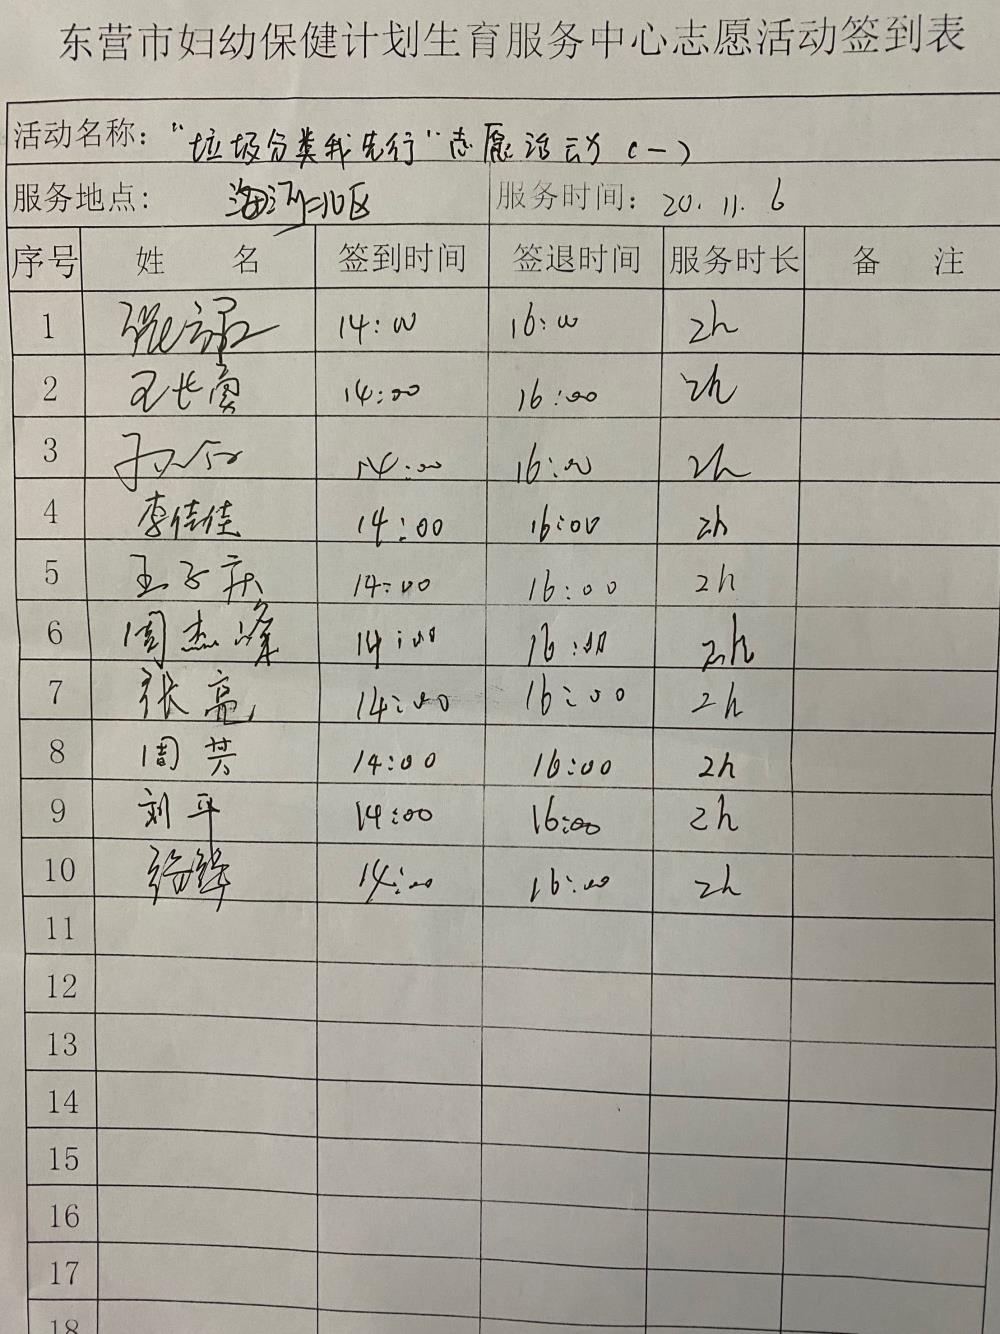 东营市妇幼保健计划生育服务中心志愿活动签到表
活动名称：“垃圾分类我先行”志愿活动（一）
服务地点： 服务时间：20.11.6
序号 姓 名 签到时间 签退时间 服务时长 备 注
1 14:00 16:00 2h
2 王长勇 14:00 16:00 2h
3 14:00 16:00 2h
4 李佳佳 14:00 16:00 2h
5 王子庆 14:00 16:00 2h
6 周杰峰 14:00 16:00 2h
7 张亮 14:00 16:00 2h
8 周芳 14:00 16:00 2h
9 刘平 14:00 16:00 2h
10 14:00 16:00 2h
11
12
13
14
15
16
17
18